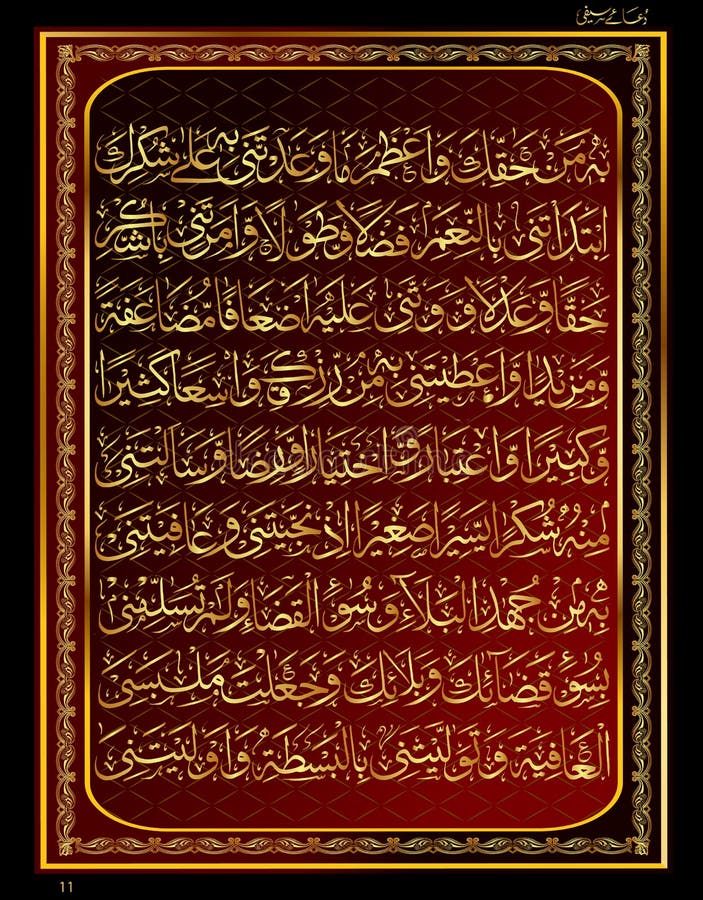 دُعائے سیفی
بِهٖ مِنْ حَقِّكَ وَاَعْظَمَ مَا وَعَدْتَنِیْ بِهٖ عَلٰی شُكْرِكَ
اِبْتَدَاْتَنِیْ بِالنِّعَمِ فَضْلًا وَّطَوْلًا وَّاَمَرْتَنِیْ بِالشُّكْرِ
حَقًّا وَّعَدْلًا وَّوَ تَّنِیْ عَلَيْهِ اَضْعَافًا مُّضَاعَفَةً
وَّمَزِيْدًا وَّاَعْطَيْتَنِیْ بِهٖ مِنْ رِّزْقِكَ وَاسِعًا كَثِيْرًا
وَّكَبِيْرًا وَّاعْتِبَارًا وَّاخْتِيَارًا وَّرِضًا وَّسَاَلْتَنِیْ
مِنْهُ شُكْرًا يَّسِيْرًا صَغِيْرًا اِذْ نَجَّيْتَنِیْ وَعَافَيْتَنِیْ
بِهٖ مِنْ جُهْدِ الْبَلَآءِ وَسُوْٓءِ الْقَضَآءِ وَلَمْ تُسَلِّمْنِیْ
بِسُوْٓءِ قَضَآئِكَ وَبَلَائِكَ وَجَعَلْتَ مَلْبَسِیَ
الْعَافِيَةَ وَتَوَلَّيْتَنِیْ بِالْبَسْطَةِ وَاَوْلَيْتَنِیْ
11